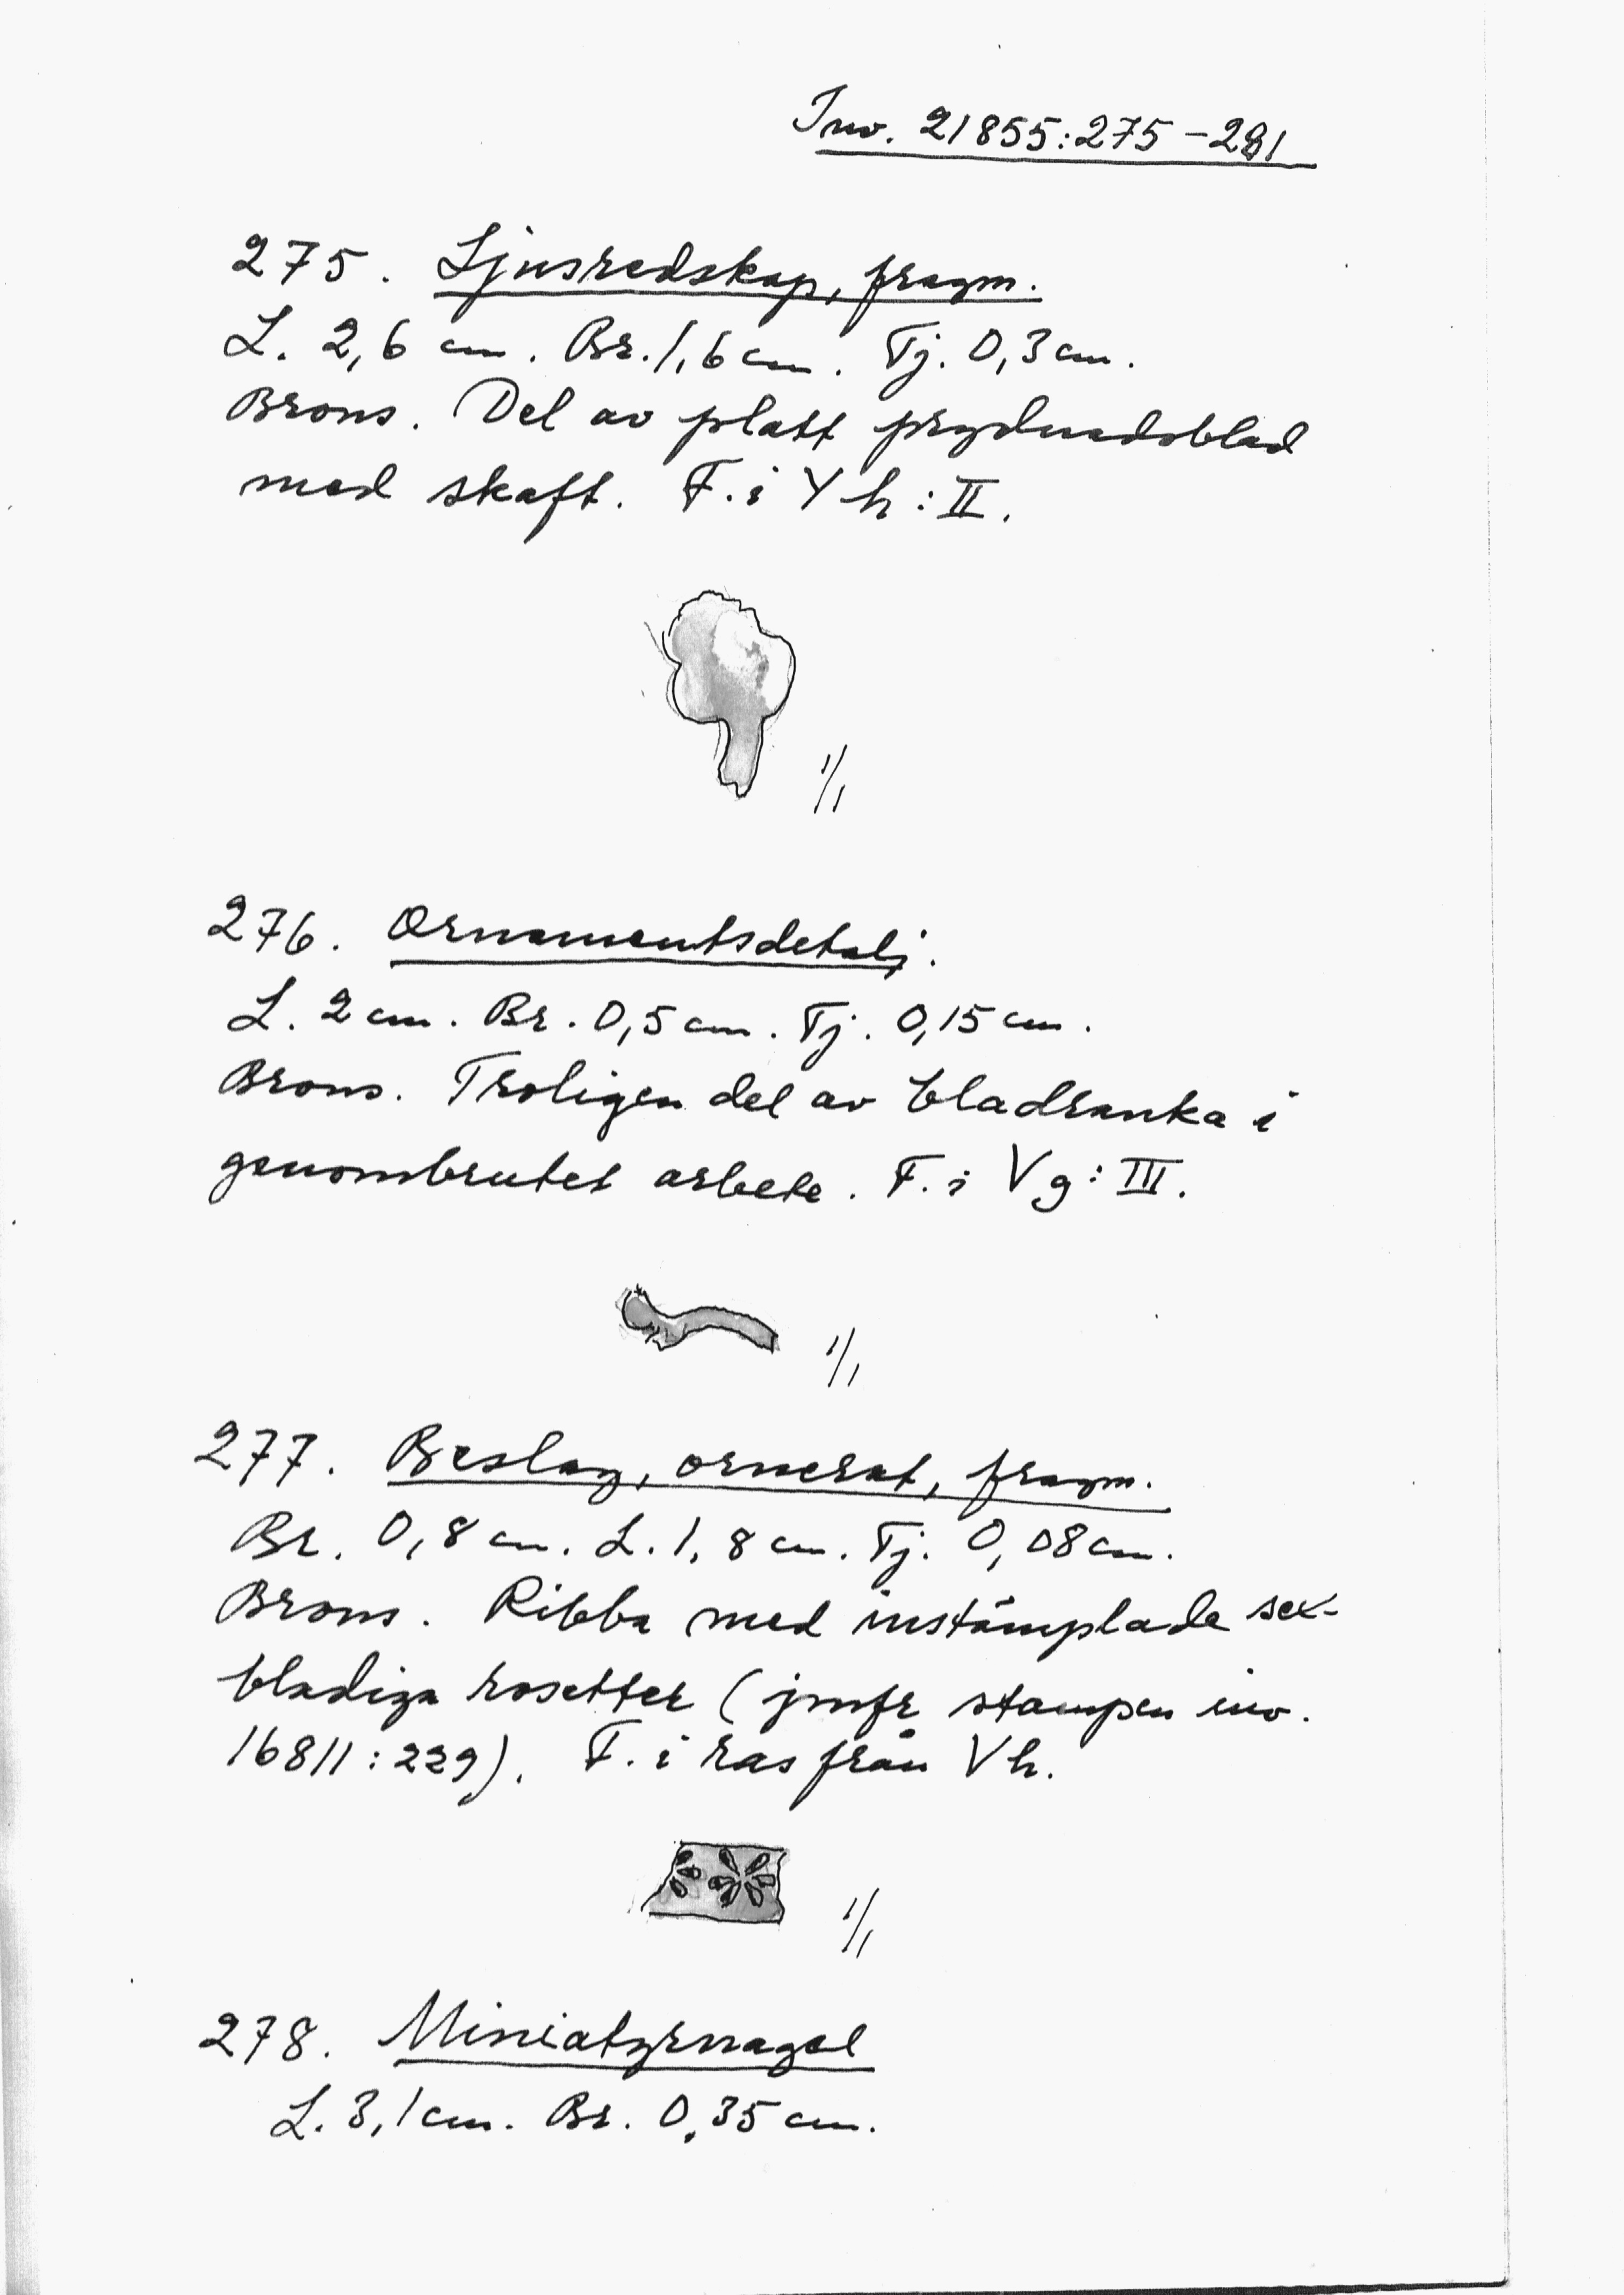 Inv. 21855:275-281
275. Ljusredskap, fragm.
L. 2,6 cm. Br. 1,6 cm. Tj. 0,3 cm.
Brons. Del av platt prydnadsblad
med skaft. F. i Y h : II.
1/1
276. Ornamentsdetalj.
L. 2 cm. Br. 0,5 cm. Tj. 0,15 cm.
Brons. Troligen del av bladranka i
genombrutet arbete. F. i V g : III.
1/1
277. Beslag, ornerat, fragm.
Br. 0,8 cm. L. 1,8 cm. Tj. 0,08 cm.
Brons. Ribba med instämplade sex-
bladiga rosetter (jmfr stampen inv.
16811:229). F. i ras från V h.
1/1
278. Miniatyrnagel
L. 3,1 cm. Br. 0,35 cm.